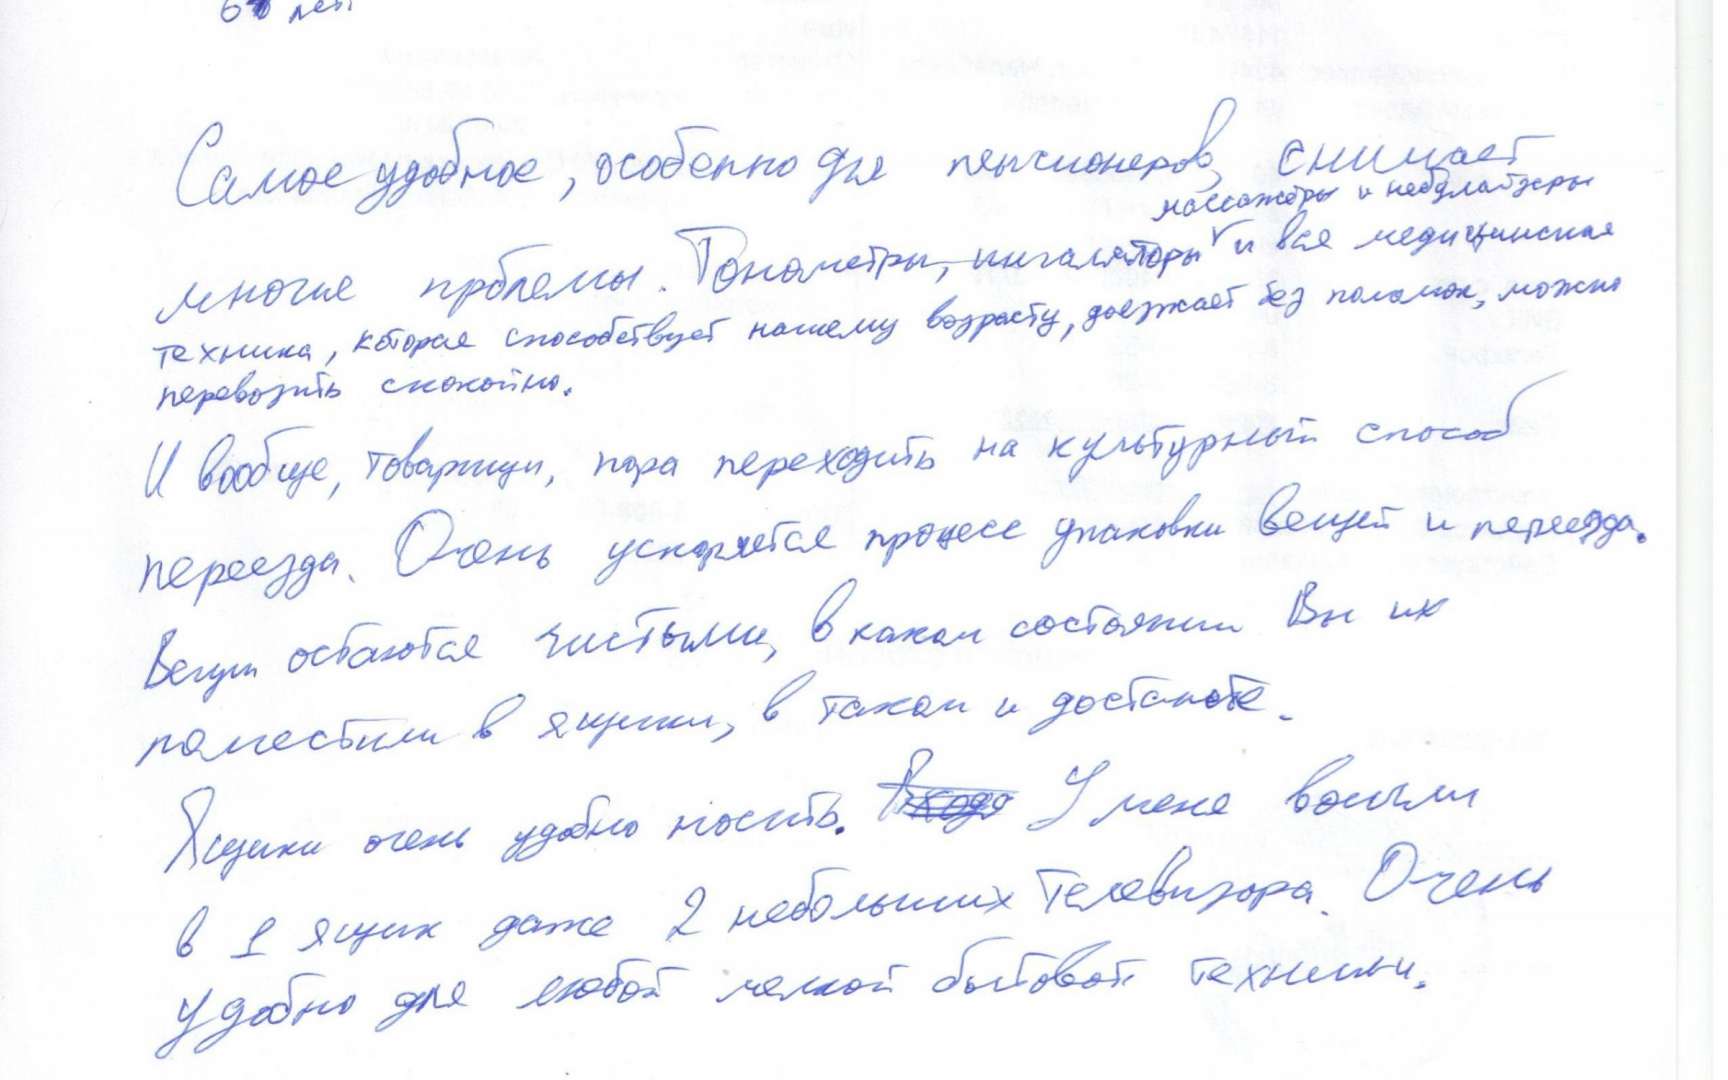 лет
Самое удобное, особенно для пенсионеров, снимает
массажеры и небулайзеры
многие прблемы. Тонометры, ингаляторы и вся медицинская
техника, которая способствует нашему возрасту, доезжает без поломок, можно
перевозить спокойно.
И вообще, товарищи, пора переходить на культурный способ
переезда. Очень ускоряется процесс упаковки вещей и переезда.
Вещи остаются чистыми, в каком состоянии Вы их
поместили в ящики, в таком и достаноте.
Ящики очень удобно носить. У меня вошли
в 1 ящик даже 2 небольших телевизора. Очень
удобно для любой мелкой бытовой техники.